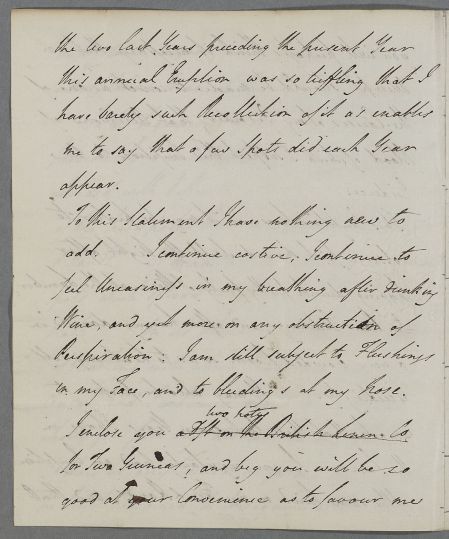 the two last Years preceding the present Year
this annual Eruption was so trifling that I
have barely such Recollection of it as enables
me to say that a few Spots did each Year
appear.
To this Statement I have nothing new to
add. I continue costive, I continue to
feel Uneasiness in my breathing after drinking
Wine, and yet more on any obstruction of
Perspiration. I am still subject to Flushings
in my Face, and to bleedings at my Nose.
two notes
I enclose you a Dft on the British Linen Co
for Two Guineas, and beg you will be so
good at your Convenience as to favour me